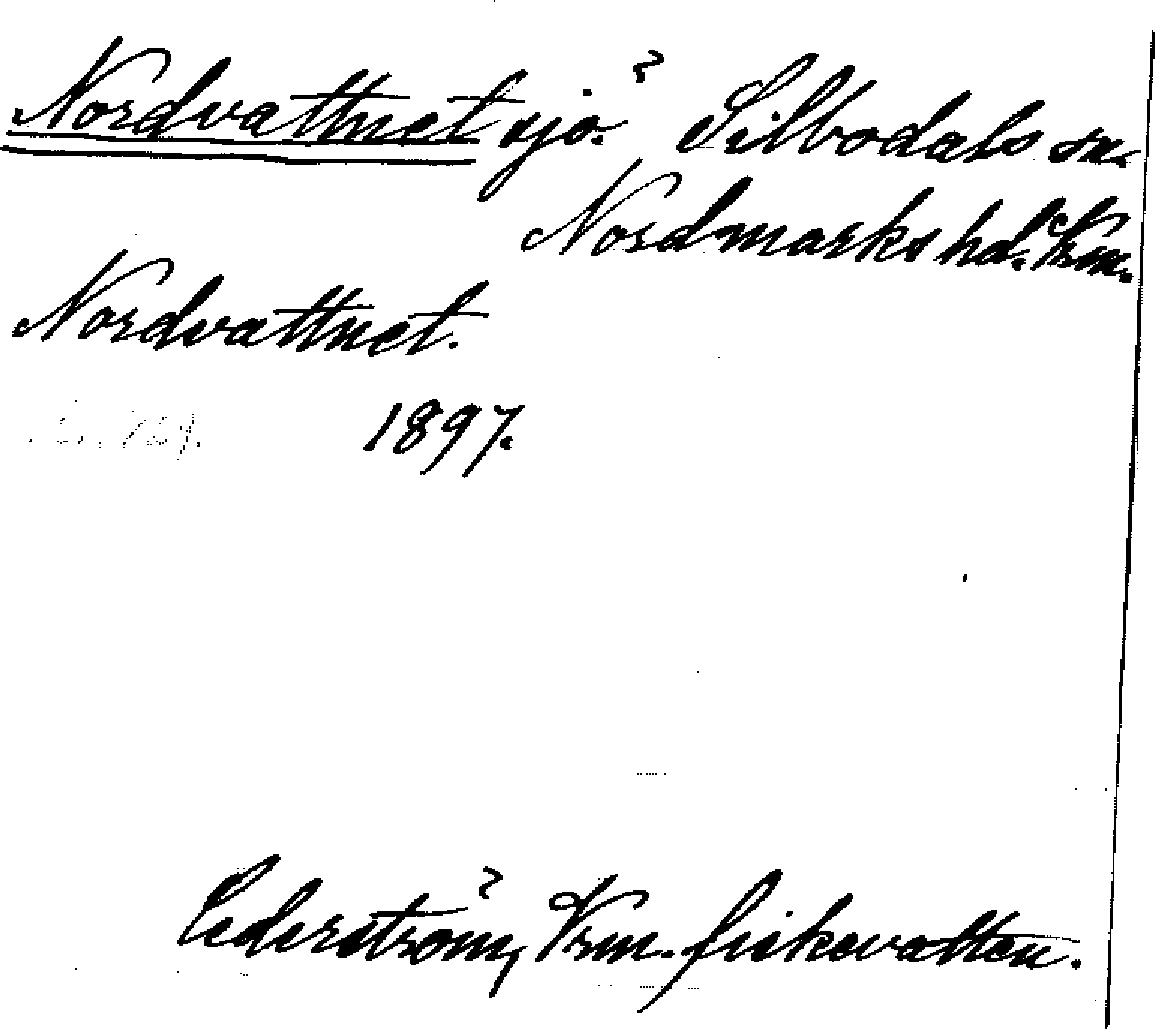 Nordvattnet sjö. Silbodals sn.
Nordmarks hd. Vrm.
Nordvattnet.
1897.
Cederström, Vrm. fiskevatten.